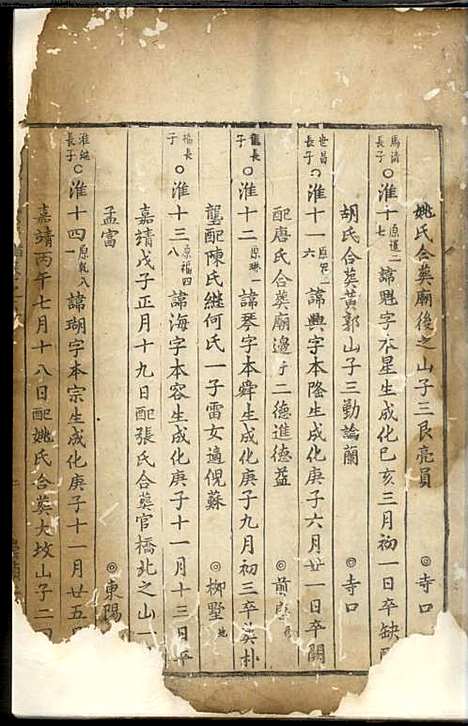 姚氏合葬廟後之山子三良亮員 ◎寺口
長子 ○淮十七 諱魁字本星生成化已亥三月初一日卒缺
胡氏合葬黃郭山子三勤論蘭 ◎寺口
世昌長子 ○淮十一六 諱興字本隆生成化庚子六月廿一日卒闕
配唐氏合葬廟邊子二德進德益
長子 ○淮十二 原琳一 諱琴字本舜生成化庚子九月初三卒葬朴
壟配陳氏繼何氏一子雷女適倪蘇 ◎柳墅
福長子 ○淮十三八 原福四 諱海字本容生成化庚子十一月十三日卒
嘉靖戊子正月十九日配張氏合葬官橋北之山一
孟富 ◎東陽
淮繼長子 ○淮十四 原乾八 諱瑚字本宗生成化庚子十一月廿五
嘉靖丙午七月十八日配姚氏合葬大坟山子二